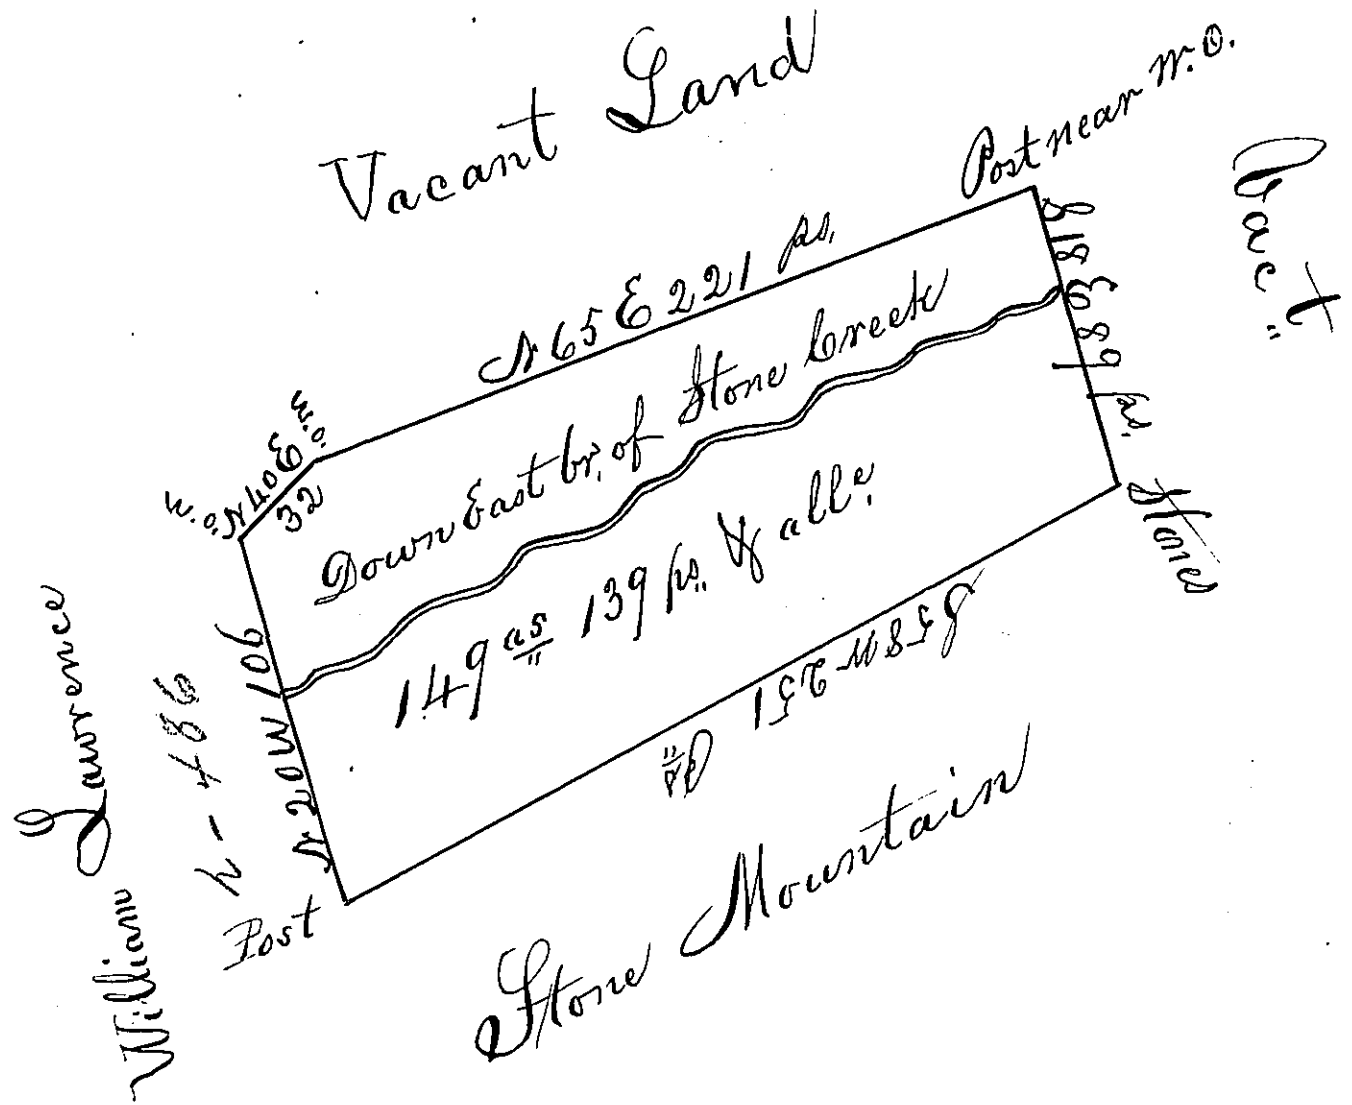 Vacant Land
Post near W.O.
Vact.
N 65 E 221 ps.
S 18 E 89 ps.
W.O.
N 40 E
32
W.O.
Down East br. of Stone Creek
149 as 139 ps. & alle.
Stones
S 58 W 251 ps
N 20 W 106
Post
William Lawrence
Stone Mountain